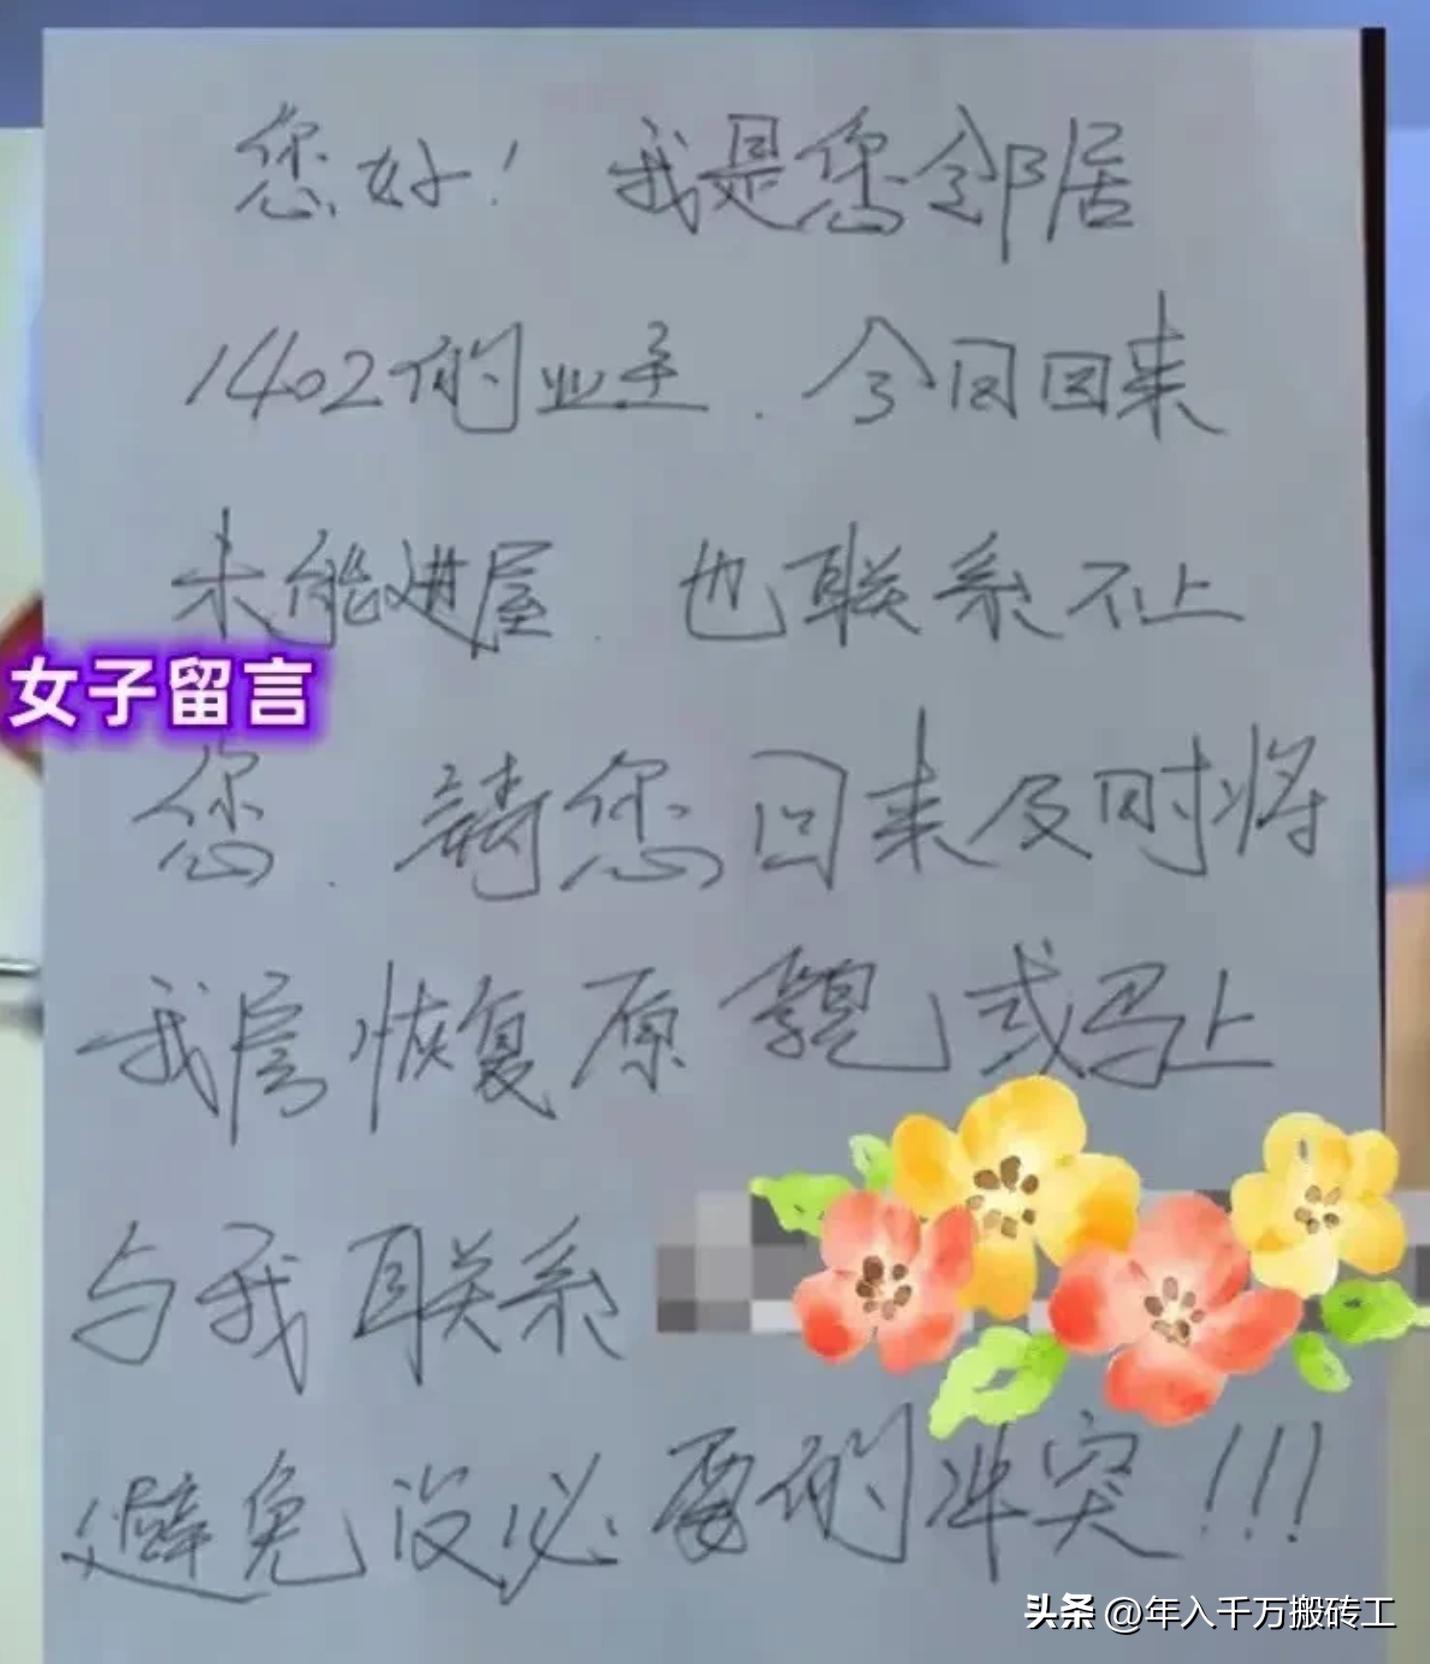 您好！我是您邻居
1402的业主．今日回来
未能进屋．也联系不上
女子留言
您．请您回来及时将
我房恢复原貌或马上
与我联系
避免没必要的冲突！！！
头条 @年入千万搬砖工